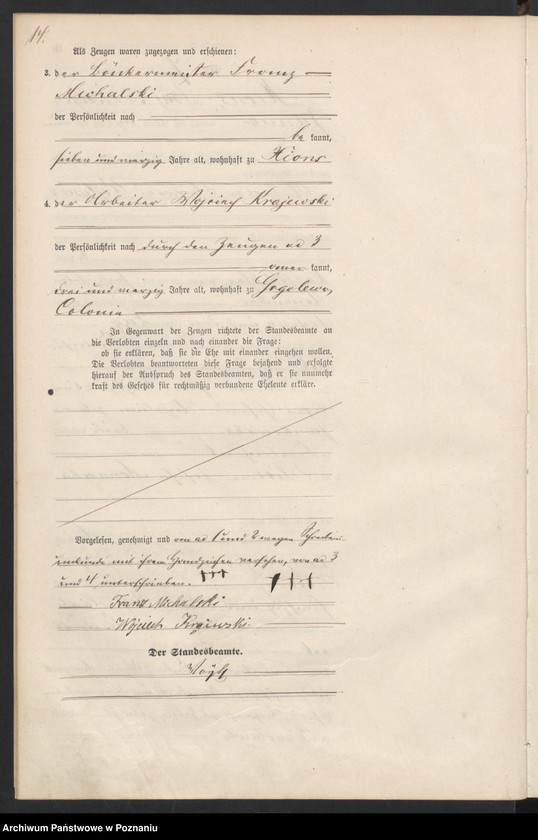 14.
Als Zeugen waren zugezogen und erschienen:
3. der Böttchermeister Franz
Michalski
der Persönlichkeit nach
be kannt,
sieben und vierzig Jahre alt, wohnhaft zu Xions
4. der Arbeiter Wojciech Krajewski
der Persönlichkeit nach durch den Zeugen ad 3
kannt,
drei und vierzig Jahre alt, wohnhaft zu Gogolewo,
Colonie
In Gegenwart der Zeugen richtete der Standesbeamte an
die Verlobten einzeln und nach einander die Frage:
ob sie erklären, daß sie die Ehe mit einander eingehen wollen.
Die Verlobten beantworteten diese Frage bejahend und erfolgte
hierauf der Ausspruch des Standesbeamten, daß er sie nunmehr
kraft des Gesetzes für rechtmäßig verbundene Eheleute erkläre.
Vorgelesen, genehmigt und von ad 1 und 2 wegen Schreibens-
unkunde mit ihrem Handzeichen versehen, von ad 3
und 4 unterschrieben. +++ +++
Franz Michalski
Wojciech
Der Standesbeamte.
Archiwum Państwowe w Poznaniu